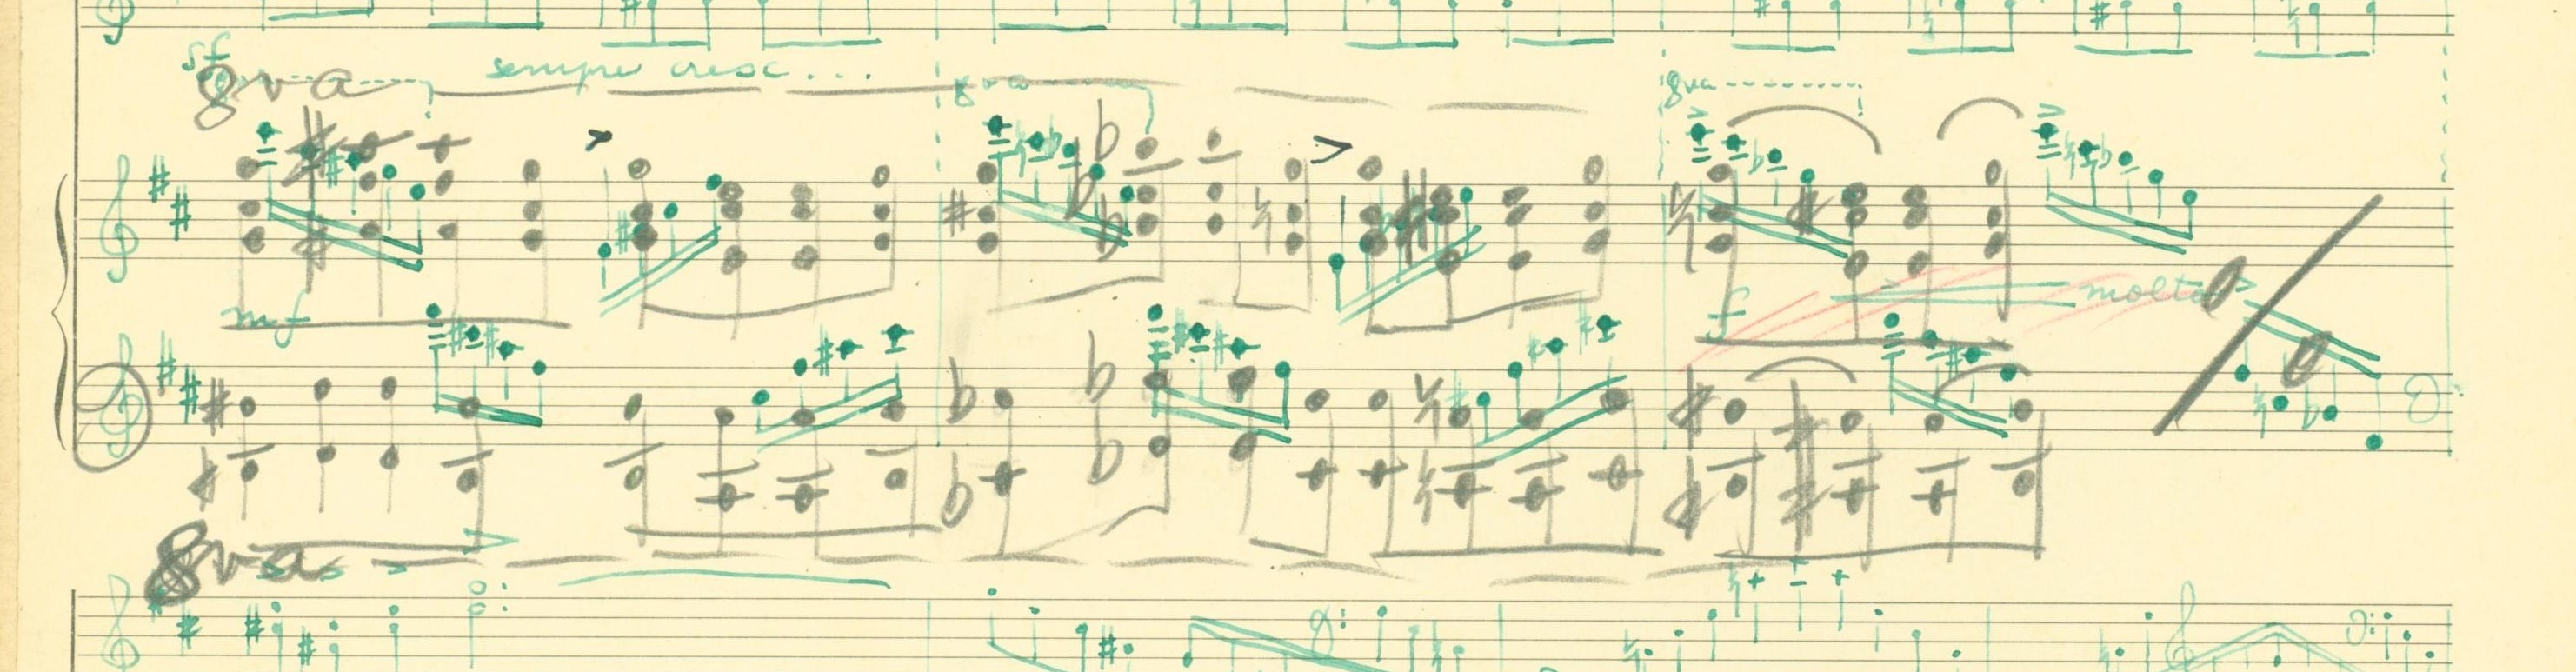 sf
sempre cresc...
8va
8va
8va
mf
f
molto
8va